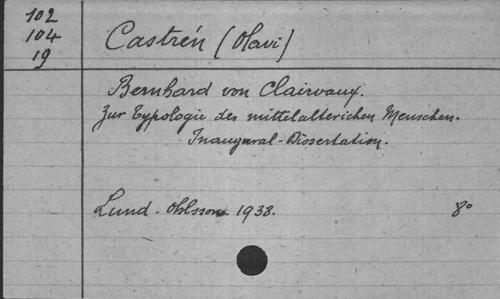 102
104
19
Castrén (Olavi)
Bernhard von Clairvaux.
Zur Typologie des mittelalterichen Menschen.
Inaugural-Dissertation.
Lund - Ohlsson 1938. 8°